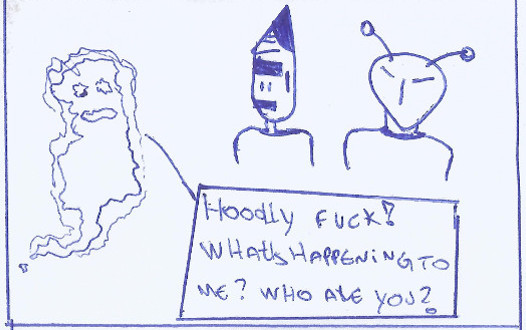 HOODLY FUCK?
WHAT'S HAPPENING TO
ME? WHO ARE YOU?